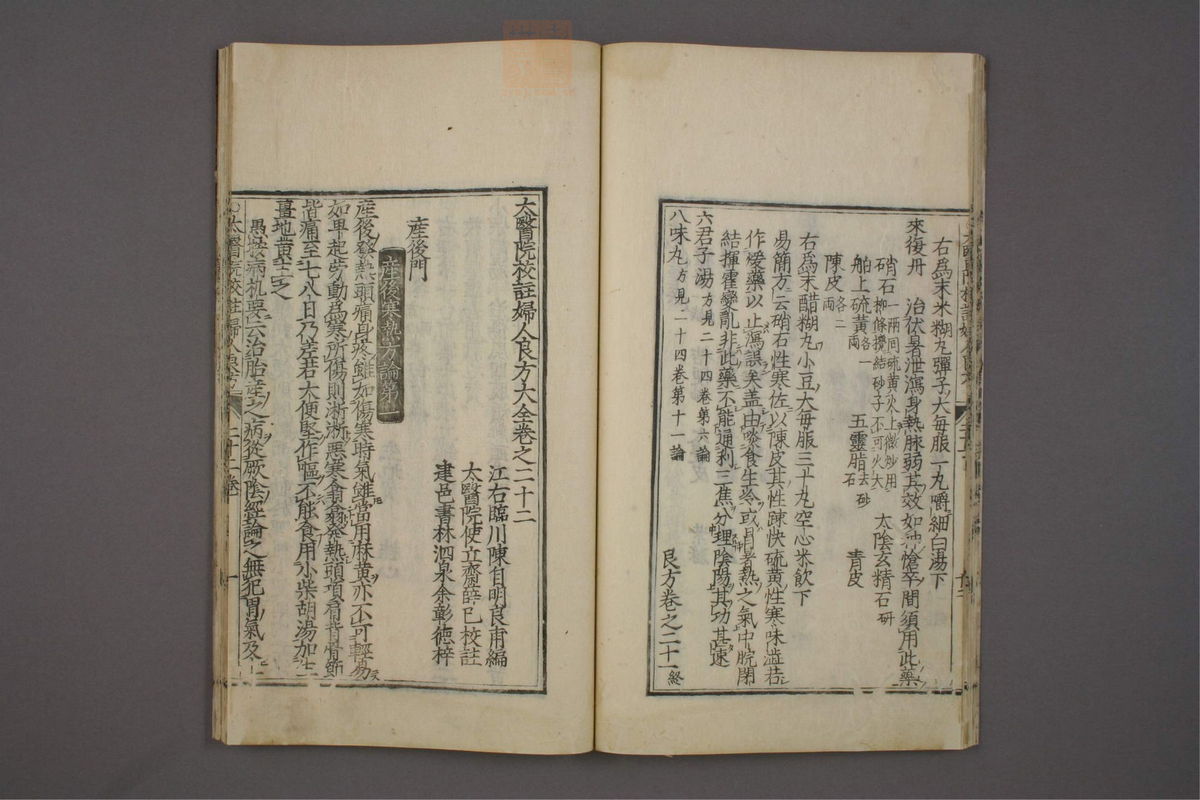 右爲末米糊丸彈子大每服一丸嚼細白湯下
來復丹　治伏暑泄瀉身熱脉弱其效如神愴卒間須用此藥
硝石一兩同硫黄火上微炒用柳條攪結砂子不可火大　太陰玄精石研
舶上硫黄各一兩　五靈脂去砂石　青皮
陳皮各二兩
右爲末醋糊丸小豆大每服三十丸空心米飮下
易簡方云硝石性寒佐以陳皮其性踈快硫黄性寒味澁若
作煖藥以止瀉誤矣盖由啖食生冷或冒暑熱之氣中脘閉
結揮霍變亂非此藥不能通利三焦分理陰陽其功甚速
六君子湯方見二十四卷第六論
八味丸方見二十四卷第十一論
良方卷之二十一終
太醫院校註婦人良方大全卷之二十二
江右臨川陳自明良甫編
太醫院使立齋薛已校註
建邑書林泗泉余彰德梓
産後門
産後寒熱方論第一
産後發熱頭痛身疼雖如傷寒時氣雖當用麻黄亦不可輕易
如早起勞動爲寒所傷則淅淅惡寒翕翕發熱頭項肩背骨節
皆痛至七八日乃差若大便堅作嘔不能食用小柴胡湯加生
薑地黄主之
愚按病机要云治胎産之病從厥陰經論之無犯胃氣及上
太醫院校註婦人良方　二十二卷　一